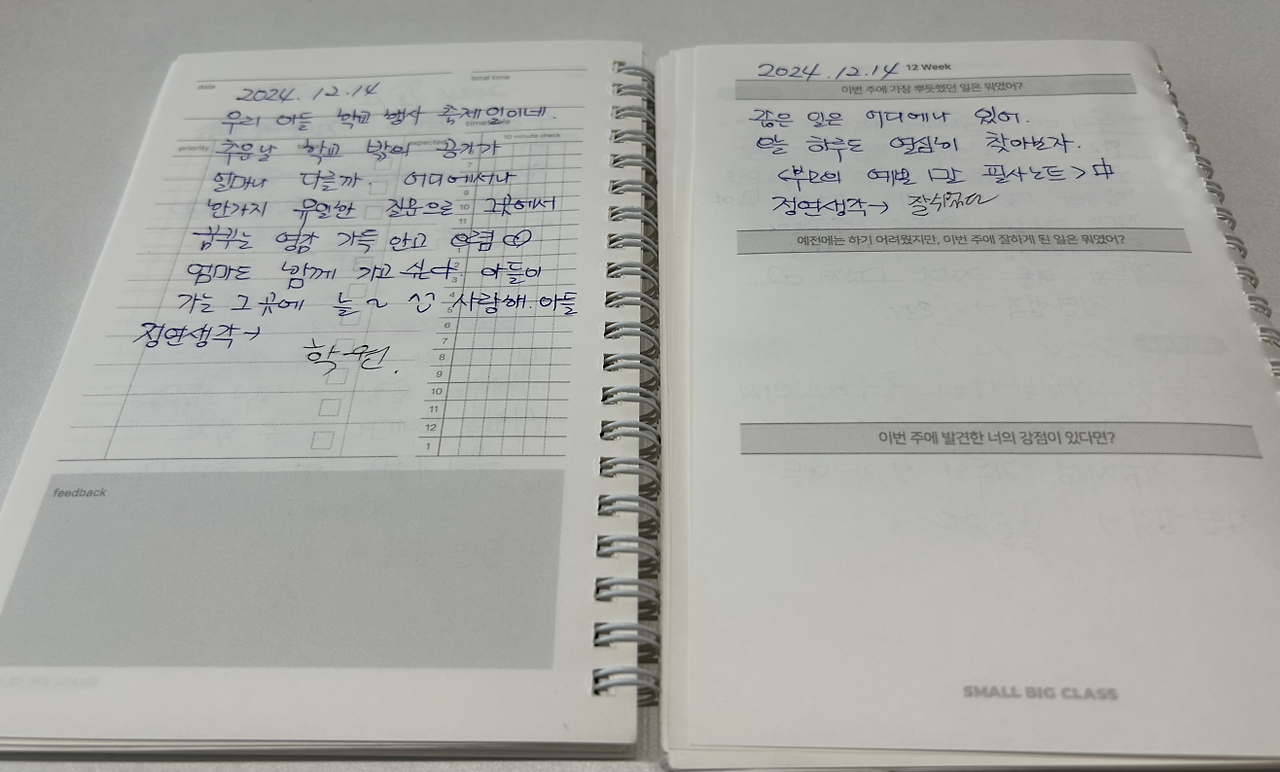 date
total time
2024. 12. 14
우리 아들 학교 행사 축제일이네.
time table
10 minute check
priority
추운날 학교 밖의 공기가
얼마나 다를까. 어디에서나
7
8
9
한가지 유일한 질문으로 그곳에서
10
11
꿈꾸는 영감 가득 안고 오렴
엄마도 함께 가고 싶다. 아들이
2
3
가는 그 곳에 늘~ ^^ 사랑해. 아들
4
5
정연생각→
6
7
학원.
8
9
10
11
12
1
feedback
2024. 12. 14 12 Week
이번 주에 가장 뿌듯했던 일은 뭐였어?
좋은 일은 어디에나 있어.
오늘 하루도 열심히 찾아보자.
<부모의 예쁜 말 필사노트> 中
정연생각→ 잘쉬었다
예전에는 하기 어려웠지만, 이번 주에 잘하게 된 일은 뭐였어?
이번 주에 발견한 너의 강점이 있다면?
SMALL BIG CLASS